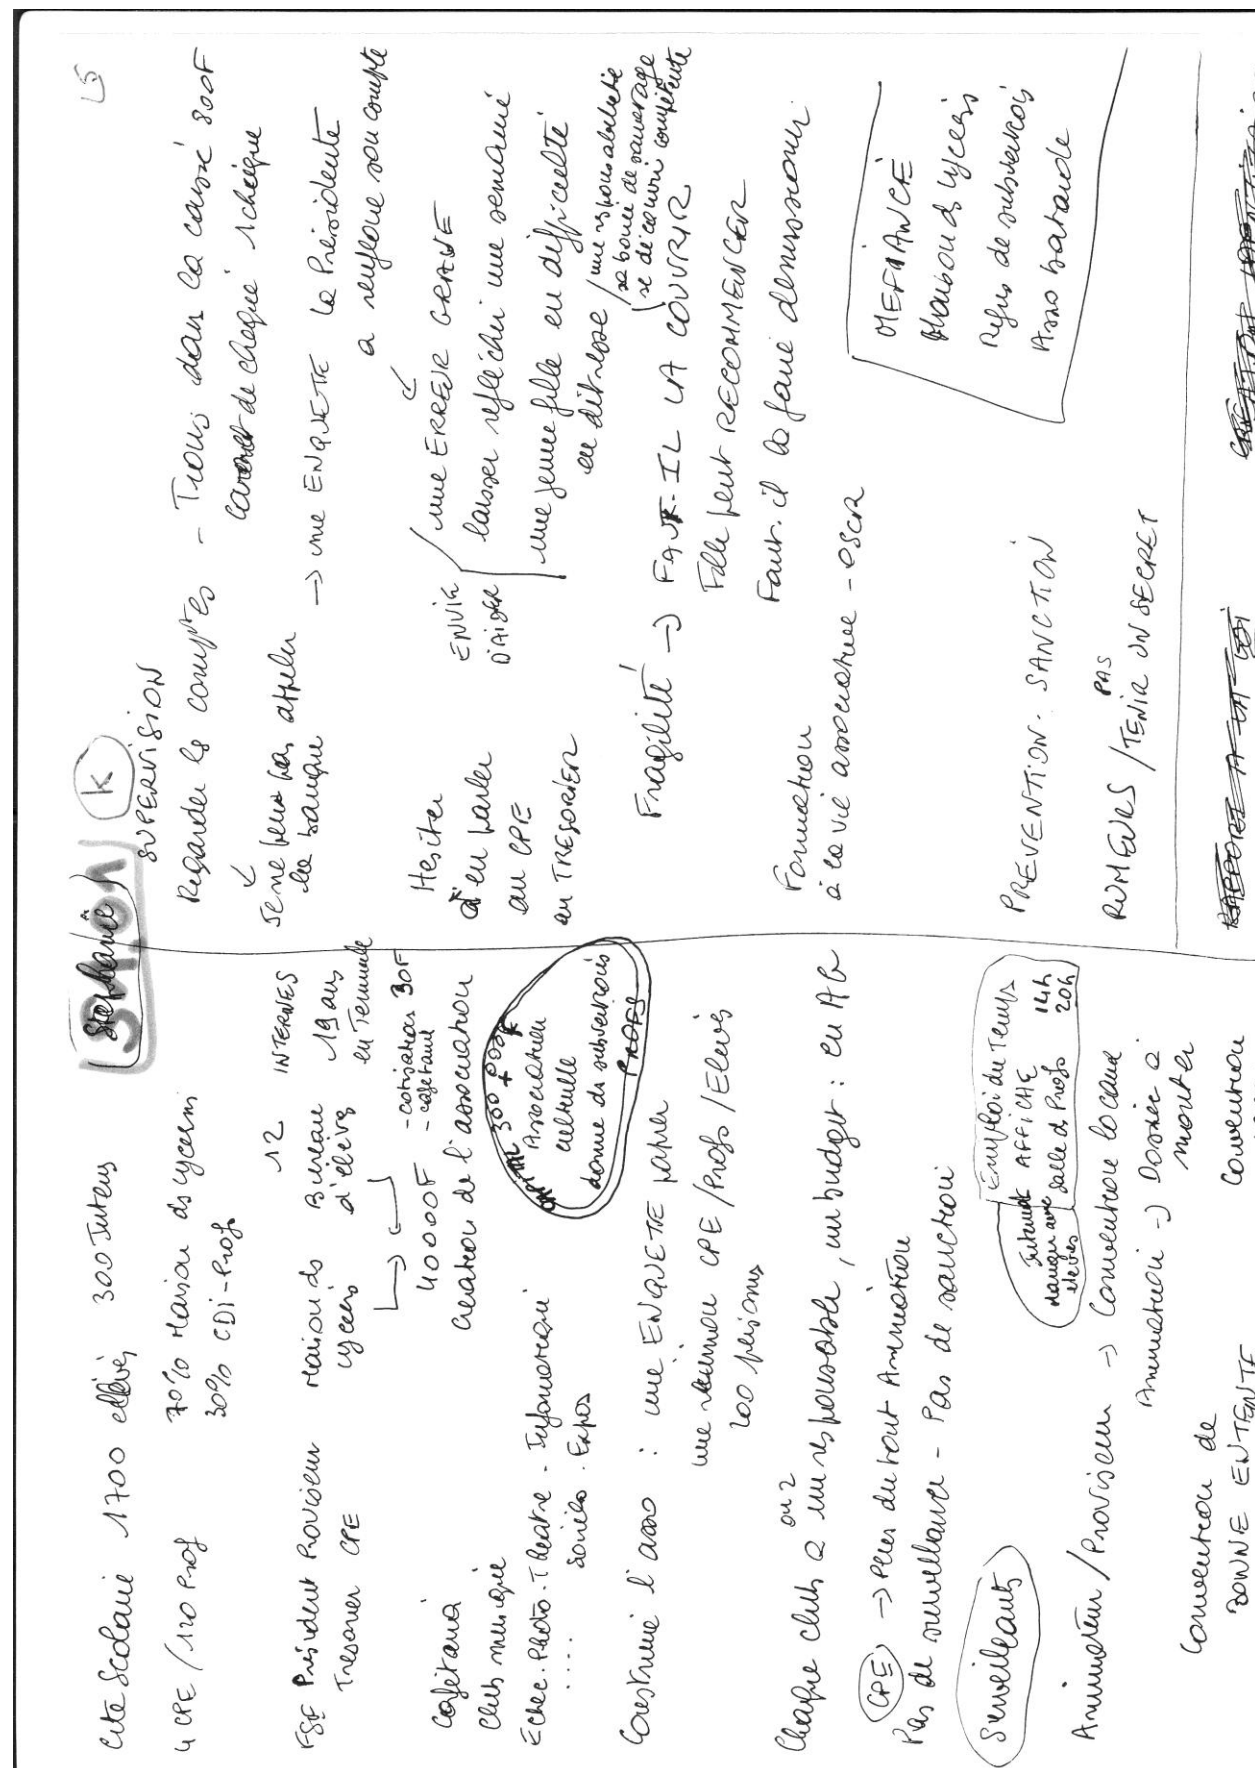 Stéphanie
K
L5
Cité Scolaire 1700 élèves 300 Internes
4 CPE / 120 Prof
70% Maison des lycéens
30% CDI - Profs
FSE Président Proviseur
Trésorier CPE
Maison des lycéens
Bureau d'élèves
12 INTERNES
19 ans
en Terminale
40000F
- cotisations 30F
- cafétaria
Création de l'association
Cafétaria
Club musique
Echec. Photo. Théatre - Information
.... Soirées. Expos
CAPITAL 300 000F
+
Association
culturelle
donne des subventions
PROFS
Construire l'asso : une ENQUETE papier
une réunion CPE / Profs / Elèves
200 personnes
Chaque club a un ou 2 responsable, un budget : en AG
CPE → Peur du tout Animation
Pas de surveillance - Pas de sanction
Surveillants
Internat
mange avec
élèves
Emploi du Temps
AFFICHE 14h
Salle des Profs 20h
Animateur / Proviseur → Convention locaux
Animation → Dossier à
monter
Convention de
BONNE ENTENTE
Convention
SUPERVISION
Regarder les comptes - Trous dans la caisse 800F
carnet de chèque 1 chèque
Je ne peux pas appeler
la banque
→ une ENQUETE la Présidente
a renfloué son compte
Hésiter
d'en parler
au CPE
au TRESORIER
ENVIE
D'AIDER
une ERREUR GRAVE
laisser réfléchir une semaine
une jeune fille en difficulté
en détresse
une responsabilité
sa bouée de sauvetage
se découvrir compétente
Fragilité → FAUT-IL LA COUVRIR
Elle peut RECOMMENCER
Faut-il la faire démissionner
Formation
à la vie associative - OSCR
MEFIANCE
Maison des lycéens
Refus de subventions
Asso bavarde
PREVENTION - SANCTION
RUMEURS / PAS TENIR UN SECRET